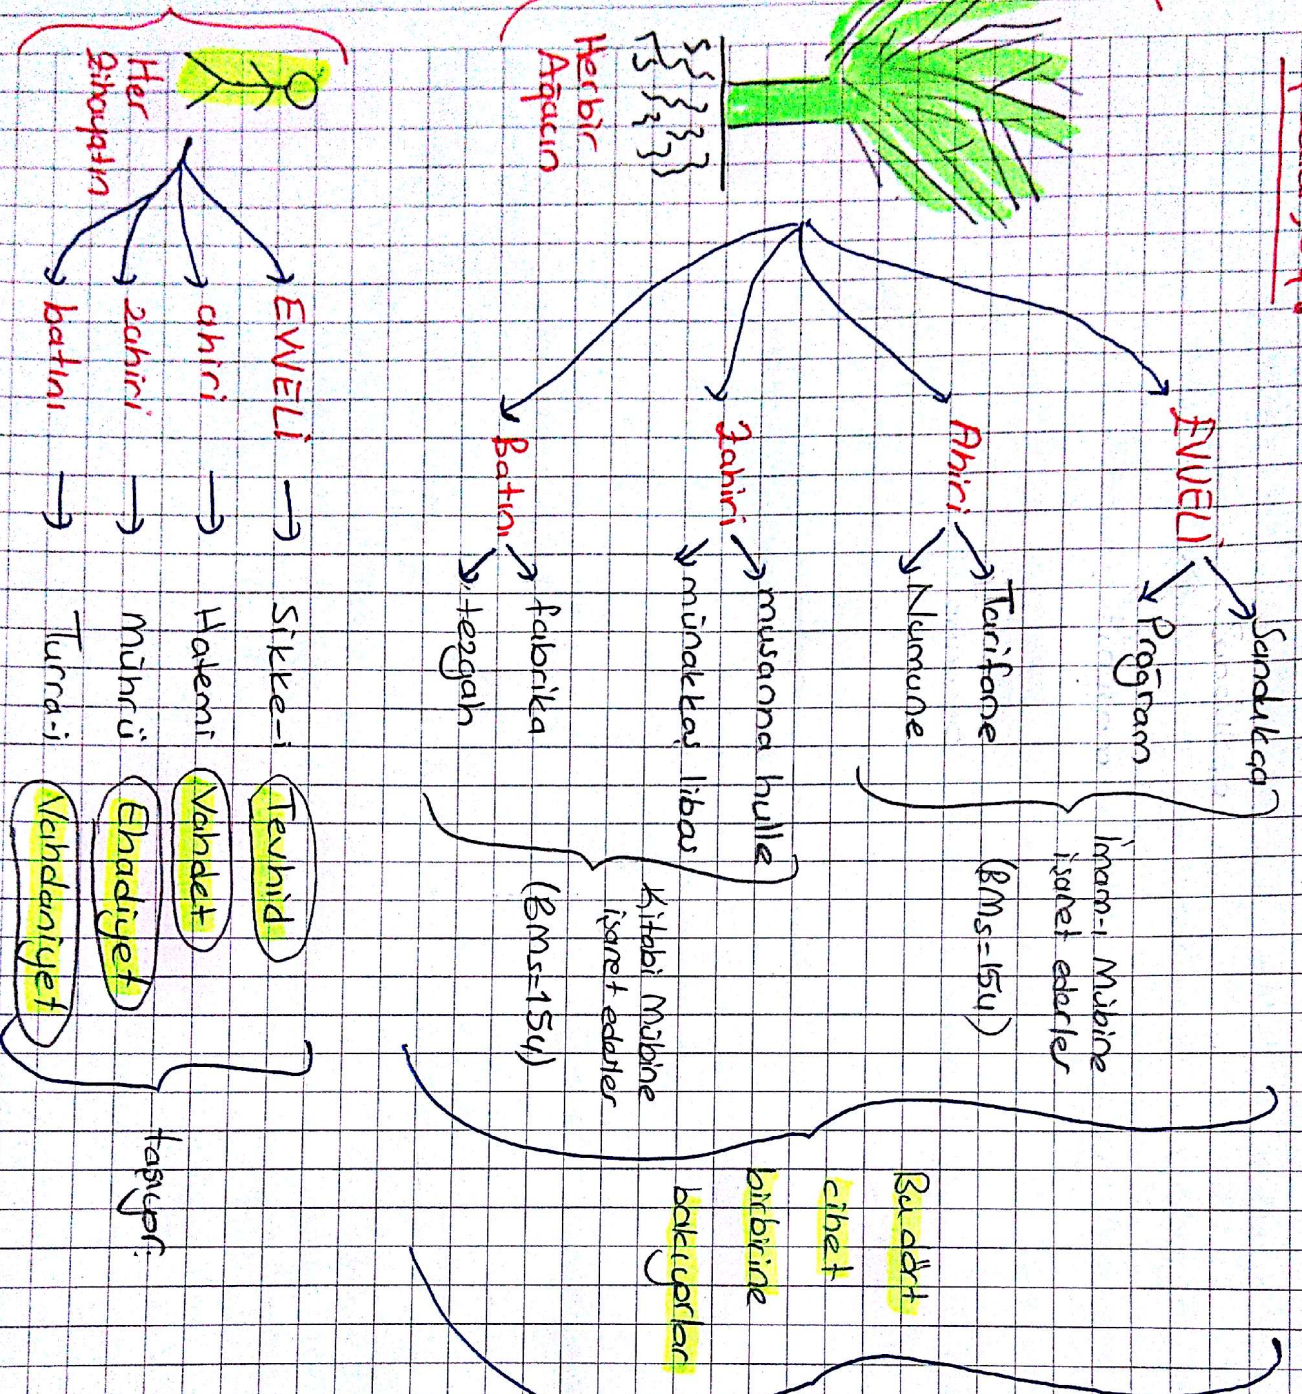 Herbir
Ağacın
EVVELİ
Sandukça
Proğram
Ahiri
Tarifane
Numune
İmam-ı Mübine
işaret ederler
(BMs=154)
Zahiri
musanna hulle
münakkaş libas
Batını
fabrika
tezgah
Kitabi Mübine
işaret ederler
(BMs=154)
Bu dört
cihet
birbirine
bakıyorlar
Her
zihayatın
EVVELİ → Sikke-i Tevhid
ahiri → Hatemi Vahdet
zahiri → Mührü Ehadiyet
batını → Turra-i Vahdaniyet
taşıyor.